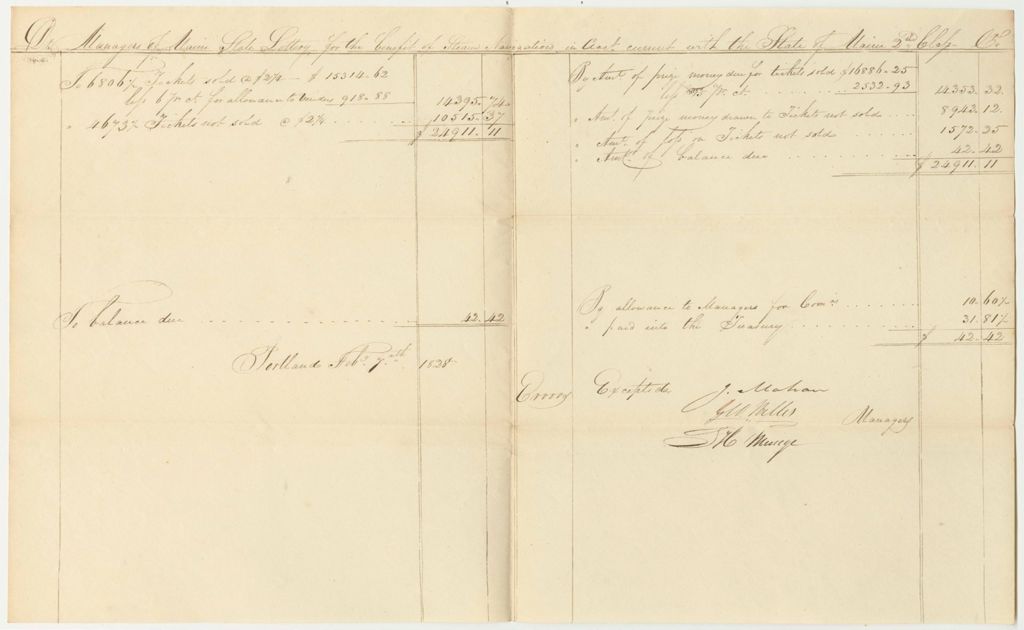 Dr. Managers of Maine State Lottery, for the benefit of Steam Navigation, in Acct. current with the State of Maine 2d Class. Cr.
To 6806½ Tickets sold @ $2¼ - $15314.62
less 6 pr. ct. for allowance to Vendors 918.88
14395.74
" 4673½ Tickets not sold @ $2¼ 10515.37
$24911.11
By Amt. of prize money due for tickets sold $16886.25
less 15 pr. ct. 2532.93
14353.32
" Amt. of prize money drawn to Tickets not sold 8943.12
" Amt. of loss on Tickets not sold 1572.25
" Amt. of balance due 42.42
$24911.11
To balance due 42.42
By allowance to Managers for Comn. 10.60½
" paid into the Treasury 31.81½
$42.42
Portland Feby. 7th 1828
Errors Excepted
J. Mahan
Managers